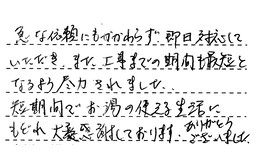 急な依頼にもかかわらず即日対応して
いただき、また、工事までの期間も最短と
なるよう尽力されました。
短期間でお湯の使える生活に
もどれ大変感謝しております。ありがとう
ございました。